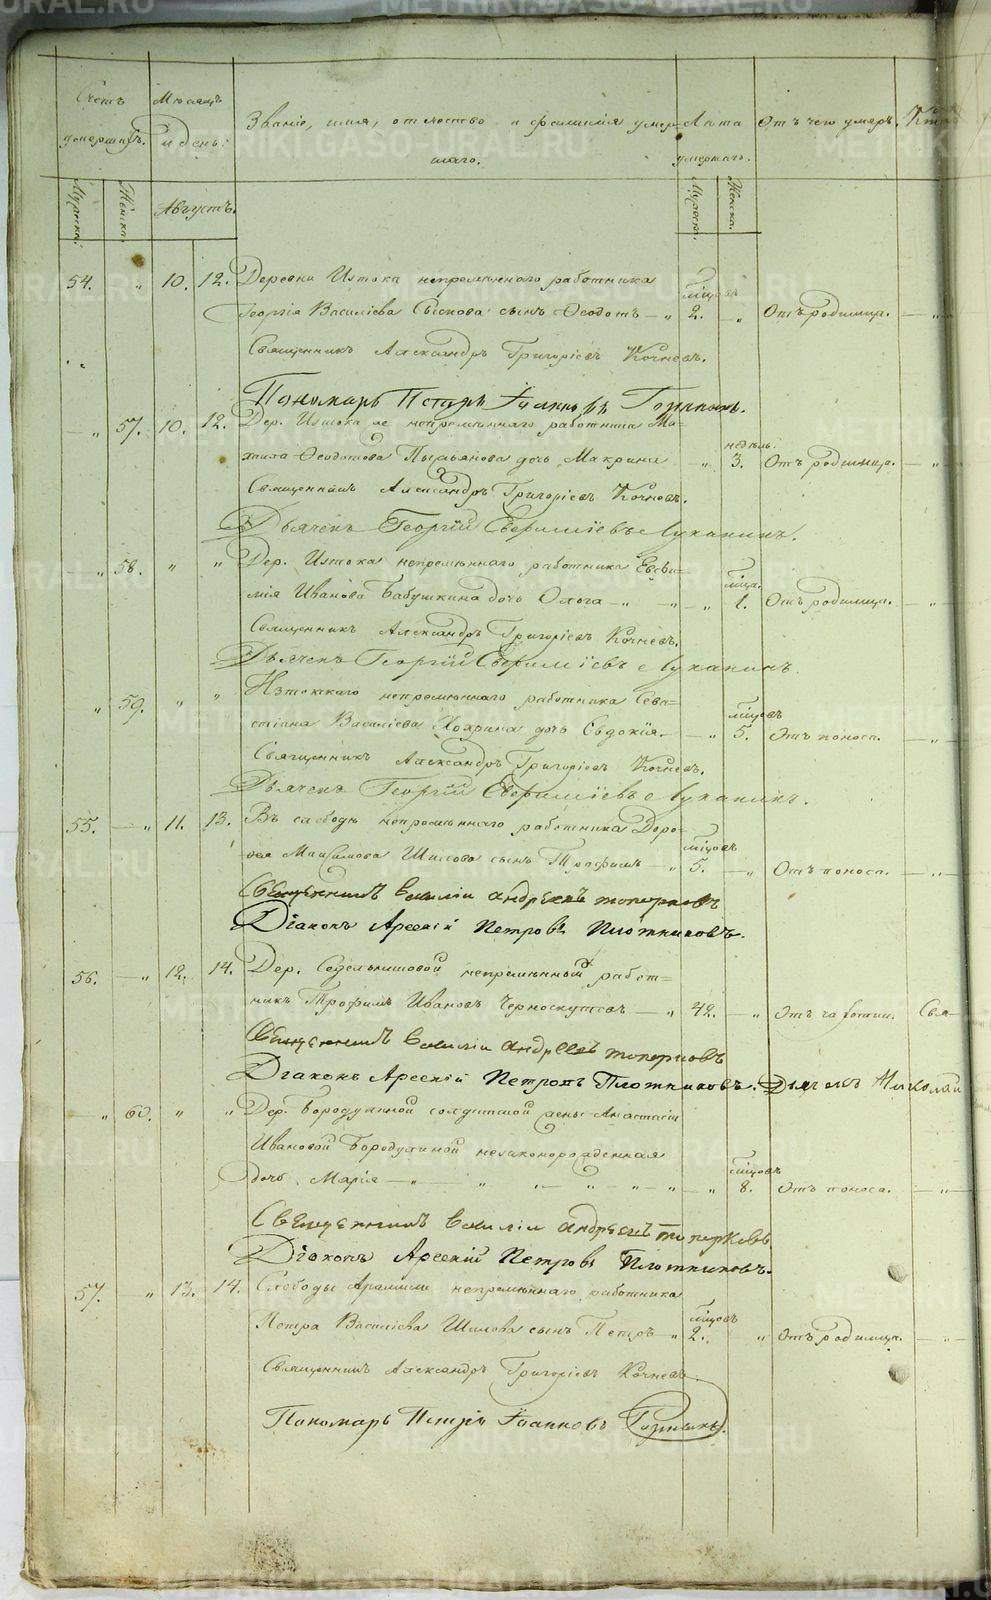 Счетъ умершихъ.
Мѣсяцъ и день.
Званіе, имя, отчество и фамилія умер-
шаго.
Лѣта умершаго.
Отъ чего умеръ.
Мужска.
Женска.
Августъ.
Мужска.
Женска.
54. " 10. 12. Деревни Истока непремѣннаго работника
мѣсцовъ
Георгія Васильева сынъ Ѳеодотъ — " 2. " Отъ родимца. — "
Священникъ Александръ Григоріевъ Кочневъ.
Пономарь Петръ Іоанновъ
— " 57. 10. 12. Дер. Истока непремѣннаго работника Ми-
недѣль.
хаила Ѳеодотова дочь Макрина — " 3. Отъ родимца. — "
Священникъ Александръ Григоріевъ Кочневъ.
Дьячекъ Георгій Луканинъ.
— " 58. " " Дер. Истока непремѣннаго работника Евѳи-
мѣсца.
мія Иванова Бабушкина дочь Ольга — " — " — " 1. Отъ родимца. — "
Священникъ Александръ Григоріевъ Кочневъ.
Дьячекъ Георгій Луканинъ.
" 59. " " Истокскаго непремѣннаго работника Сева-
мѣсцовъ
стіана Васильева дочь Евдокія. — " 5. Отъ поноса. — "
Священникъ Александръ Григоріевъ Кочневъ.
Дьячекъ Георгій Луканинъ.
55. — " 11. 13. Въ слободѣ непремѣннаго работника Доро-
мѣсцовъ
ѳея Максимова Шилова сынъ Трофимъ — " 5. — " Отъ поноса. — "
Священникъ Василій Андреевъ Топорковъ
Діаконъ Арсеній Петровъ Плотниковъ.
56. — " 12. 14. Дер. непремѣнный работ-
никъ Трофимъ Ивановъ Черноскутовъ — " 42. — " Отъ чахотки. Свя-
Священникъ Василій Андреевъ Топорковъ
Діаконъ Арсеній Петровъ Плотниковъ. Дьячекъ Николай
" 60. " " Дер. Бородулиной солдатской жены Анастасіи
Ивановой Бородулиной незаконорожденная
мѣсцовъ
дочь Марія — " " " — " — " — " 8. Отъ поноса. — "
Священникъ Василій Андреевъ Топорковъ
Діаконъ Арсеній Петровъ Плотниковъ.
57. " 13. 14. Слободы Арамили непремѣннаго работника
мѣсцовъ
Петра Васильева Шилова сынъ Петръ — " 2. " Отъ родимца. — "
Священникъ Александръ Григоріевъ Кочневъ.
Пономарь Петръ Іоанновъ
METRIKI.GASO-URAL.RU